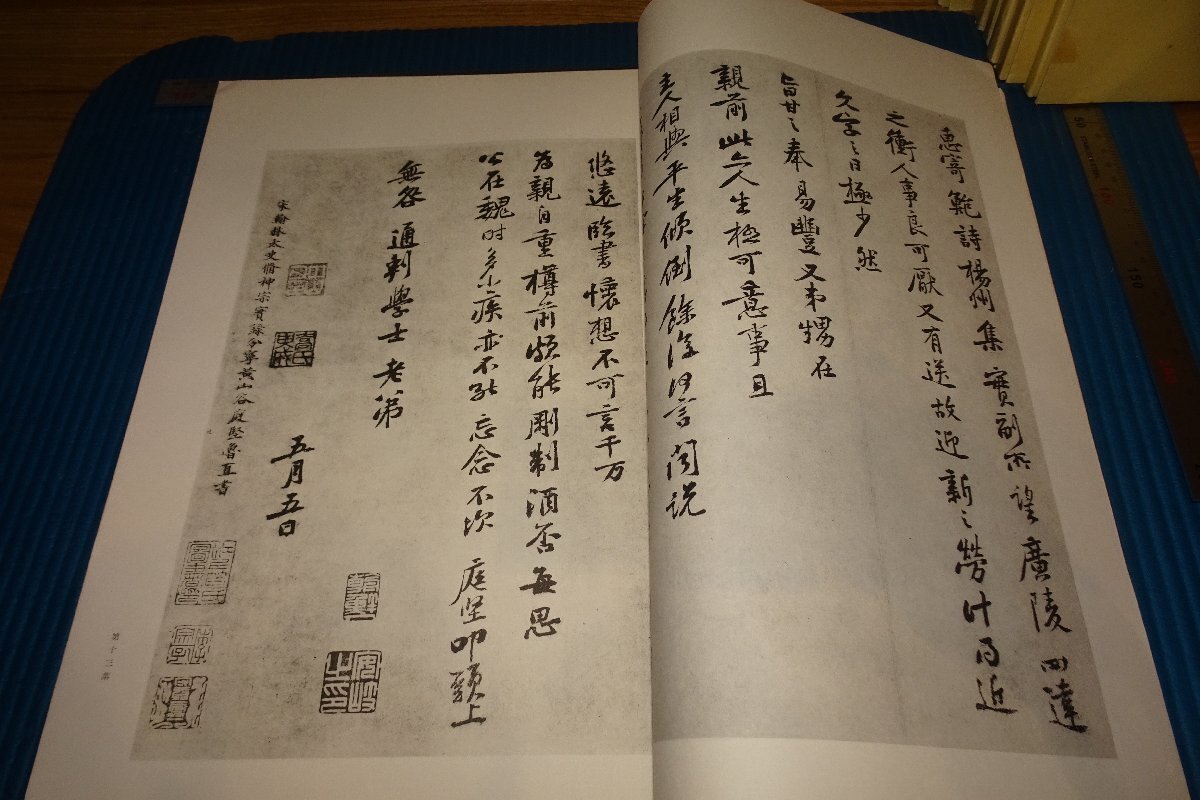 惠寄鮑詩揚州集實副所望廣陵四達
之衝人事良可厭又有送故迎新之勞計為近
文字之日極少然
旨甘之奉易豐又弟甥在
親前此亦人生極可意事且
主人相與平生傾倒餘復何言閻說
悠遠臨書懷想不可言千万
為親自重樽前頗能剛制酒否每思
公在魏時多小疾亦不能忘念不次 庭堅叩頭上
無咎通判學士老弟
五月五日
宋翰林太史脩神宗實錄分寧黃山谷庭堅魯直書
第十三葉
50